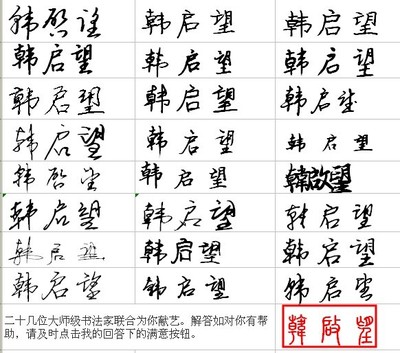 韩啓望 韩启望 韩启望
韩启望 韩启望 韩启望
韩启望 韩启望 韩启望
韩启望 韩启望 韩启望
韩啓望 韩启望 韩啟望
韩启望 韩启望 韩启望
韩启望 韩启望 韩启望
韩启望 韩启望 韩启望
二十几位大师级书法家联合为你献艺。解答如对你有帮
助，请及时点击我的回答下的满意按钮。
韓啟望